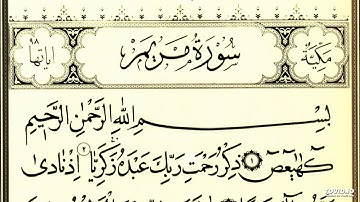 مكية
سورة مريم
آياتها ٩٨
بِسْمِ اللَّهِ الرَّحْمَٰنِ الرَّحِيمِ
كٓهٰيٰعٓصٓ ١ ذِكْرُ رَحْمَتِ رَبِّكَ عَبْدَهُ زَكَرِيَّا ٢ إِذْ نَادَىٰ